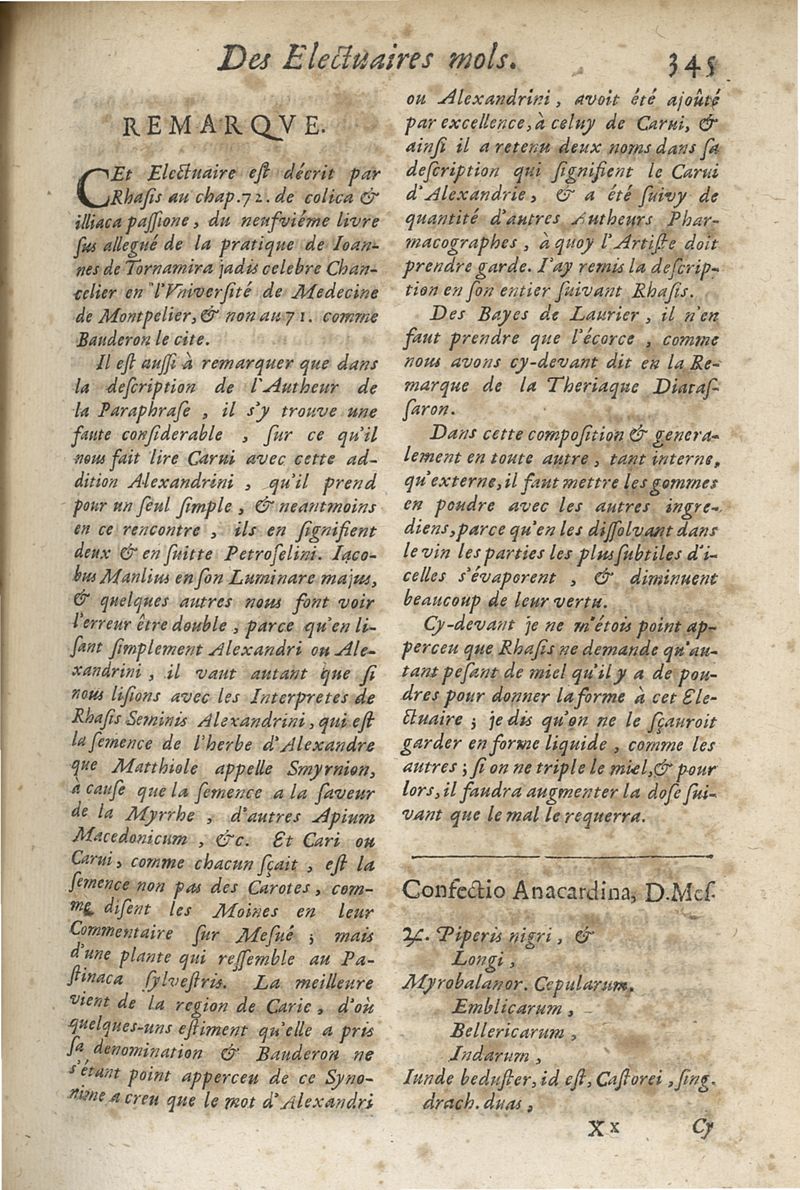 Des Electuaires mols. 345
REMARQVE.
CEt Electuaire eſt décrit par
Rhaſis au chap. 72. de colica &
illiaca paſſione, du neufviéme livre
ſus allegué de la pratique de Ioan-
nes de Tornamira jadis celebre Chan-
celier en l'Vniverſité de Medecine
de Montpelier, & non au 71. comme
Bauderon le cite.
Il eſt auſſi à remarquer que dans
la deſcription de l'Autheur de
la Paraphraſe, il s'y trouve une
faute conſiderable, ſur ce qu'il
nous fait lire Carui avec cette ad-
dition Alexandrini, qu'il prend
pour un ſeul ſimple, & neantmoins
en ce rencontre, ils en ſignifient
deux & en ſuitte Petroſelini. Iaco-
bus Manlius en ſon Luminare majus,
& quelques autres nous font voir
l'erreur être double, parce qu'en li-
ſant ſimplement Alexandri ou Ale-
xandrini, il vaut autant que ſi
nous liſions avec les Interpretes de
Rhaſis Seminis Alexandrini, qui eſt
la ſemence de l'herbe d'Alexandre
que Matthiole appelle Smyrnion,
à cauſe que la ſemence a la ſaveur
de la Myrrhe, d'autres Apium
Macedonicum, &c. Et Cari ou
Carui, comme chacun ſçait, eſt la
ſemence non pas des Carotes, com-
me diſent les Moines en leur
Commentaire ſur Meſué; mais
d'une plante qui reſſemble au Pa-
ſtinaca ſylveſtris. La meilleure
vient de la region de Carie, d'où
quelques-uns eſtiment qu'elle a pris
ſa denomination & Bauderon ne
s'étant point apperceu de ce Syno-
nime a creu que le mot d'Alexandri
ou Alexandrini, avoit été ajoûté
par excellence, à celuy de Carui, &
ainſi il a retenu deux noms dans ſa
deſcription qui ſignifient le Carui
d'Aléxandrie, & a été ſuivy de
quantité d'autres Autheurs Phar-
macographes, à quoy l'Artiſte doit
prendre garde. I'ay remis la deſcrip-
tion en ſon entier ſuivant Rhaſis.
Des Bayes de Laurier, il n'en
faut prendre que l'écorce, comme
nous avons cy-devant dit en la Re-
marque de la Theriaque Diataſ-
ſaron.
Dans cette compoſition & genera-
lement en toute autre, tant interne,
qu'externe, il faut mettre les gommes
en poudre avec les autres ingre-
diens, parce qu'en les diſſolvant dans
le vin les parties les plus ſubtiles d'i-
celles s'évaporent, & diminuent
beaucoup de leur vertu.
Cy-devant je ne m'étois point ap-
perceu que Rhaſis ne demande qu'au-
tant peſant de miel qu'il y a de pou-
dres pour donner la forme à cet Ele-
ctuaire; je dis qu'on ne le ſçauroit
garder en forme liquide, comme les
autres; ſi on ne triple le miel, & pour
lors, il faudra augmenter la doſe ſui-
vant que le mal le requerra.
Confectio Anacardina, D. Meſ.
♃. Piperis nigri, &
Longi,
Myrobalanor. Cepularum,
Emblicarum,
Bellericarum,
Indarum,
Iunde beduſter, id eſt, Caſtorei, ſing.
drach. duas,
Xx Cy